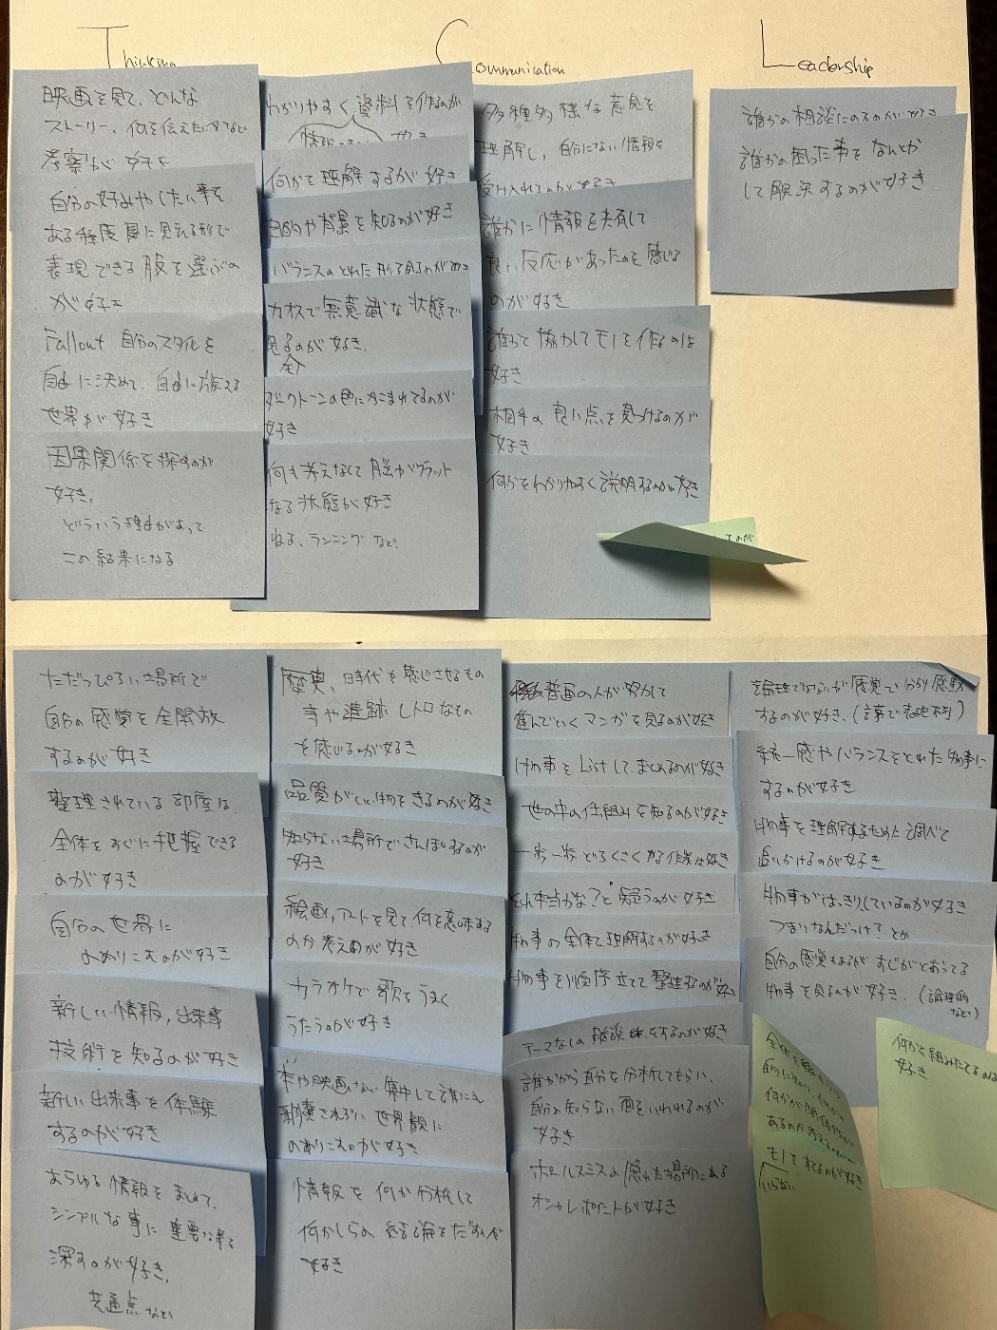 Thinking
Communication
Leadership
映画を見て、どんな
ストーリー、何を伝えたいかなど
考察が好き
自分の好みやしたい事を
ある程度目に見える形で
表現できる服を選ぶの
が好き
Fallout 自分のスタイルを
自由に決めて、自由に旅する
世界が好き
因果関係を探すのが
好き。
どういう理由があって
この結果になる
わかりやすく資料を作るのが
何かを理解するが好き
目的や背景を知るのが好き
バランスのとれた
カオスで無意識な状態で
見るのが好き。
ダークトーンの色にかこまれてるのが
好き
何も考えなくて脳がフラット
なる状態が好き
ねる、ランニングなど。
多種多様な意見を
理解し、自分にない情報を
受け入れてのが好き
誰かに情報を共有して
良い反応があったのを感じる
のが好き
誰かと協力してモノを作るのは
好き
相手の良い点を見つけるのが
好き
何かをわかりやすく説明するのが好き
誰かの相談にのるのが好き
誰かの困った事をなんとか
して解決するのが好き
ただっぴろい場所で
自分の感覚を全開放
するのが好き
整理されている部屋は
全体をすぐに把握できる
のが好き
自分の世界に
のめりこむのが好き
新しい情報、出来事
技術を知るのが好き
新しい出来事を体験
するのが好き
あらゆる情報をまとめて、
シンプルな事に重要な事を
探すのが好き。
共通点など
歴史、時代を感じさせるもの
事や遺跡 レトロなもの
を感じるのが好き
品質がいい物をきるのが好き
知らない場所でさんぽするのが
好き
絵画、アートを見て、何を意味する
のか考えるが好き
カラオケで歌をうまく
うたうのが好き
本や映画など集中して誰にも
邪魔されずに世界観に
のめりこむが好き
情報を何か分析して
何かしらの結論をだすのが
好き
普通の人が努力して
進んでいくマンガを見るのが好き
物事をListして、まとめるのが好き
世の中の仕組みを知るのが好き
一歩一歩どろくさくやる作業は好き
本当かな?と疑うのが好き
物事の全体を理解するのが好き
物事を順序立てて整理するのが好き
テーマなしの雑談をするのが好き
誰かから自分を分析してもらい、
自分の知らない面をいわれるのが
好き
ポールスミスの隠れた場所にある
オシャレポイントが好き
論理ではないが感覚で分かり感動
するのが好き。(言事で表現不可)
統一感やバランスをとれた物事に
するのが好き
物事を理解するために調べて
追いかけるのが好き
物事がはっきりしているのが好き
つまりなんだっけ?とか
自分の感覚もあるがすじがとおってる
物事を見るのが好き。(論理的
など)
何かが関係性が
あるのか考えるのが
モノをすてるのが好き
いらない
何かを組みたてるのは
好き